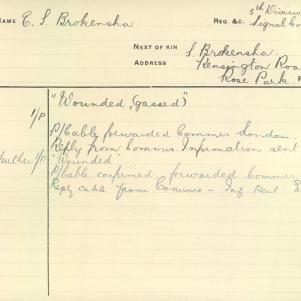 5th Division
NAME E. S. Brokensha REG. &C. Signal Co
NEXT OF KIN S. Brokensha
ADDRESS Kensington Roa
Rose Park.
"Wounded, (gassed")
I/P
P/Cable forwarded Commrs London
Reply from Commrs. Information sent
Further I/P "Wounded"
P/Cable confirmed forwarded Commrs
Reply cable from Commrs - Inf sent